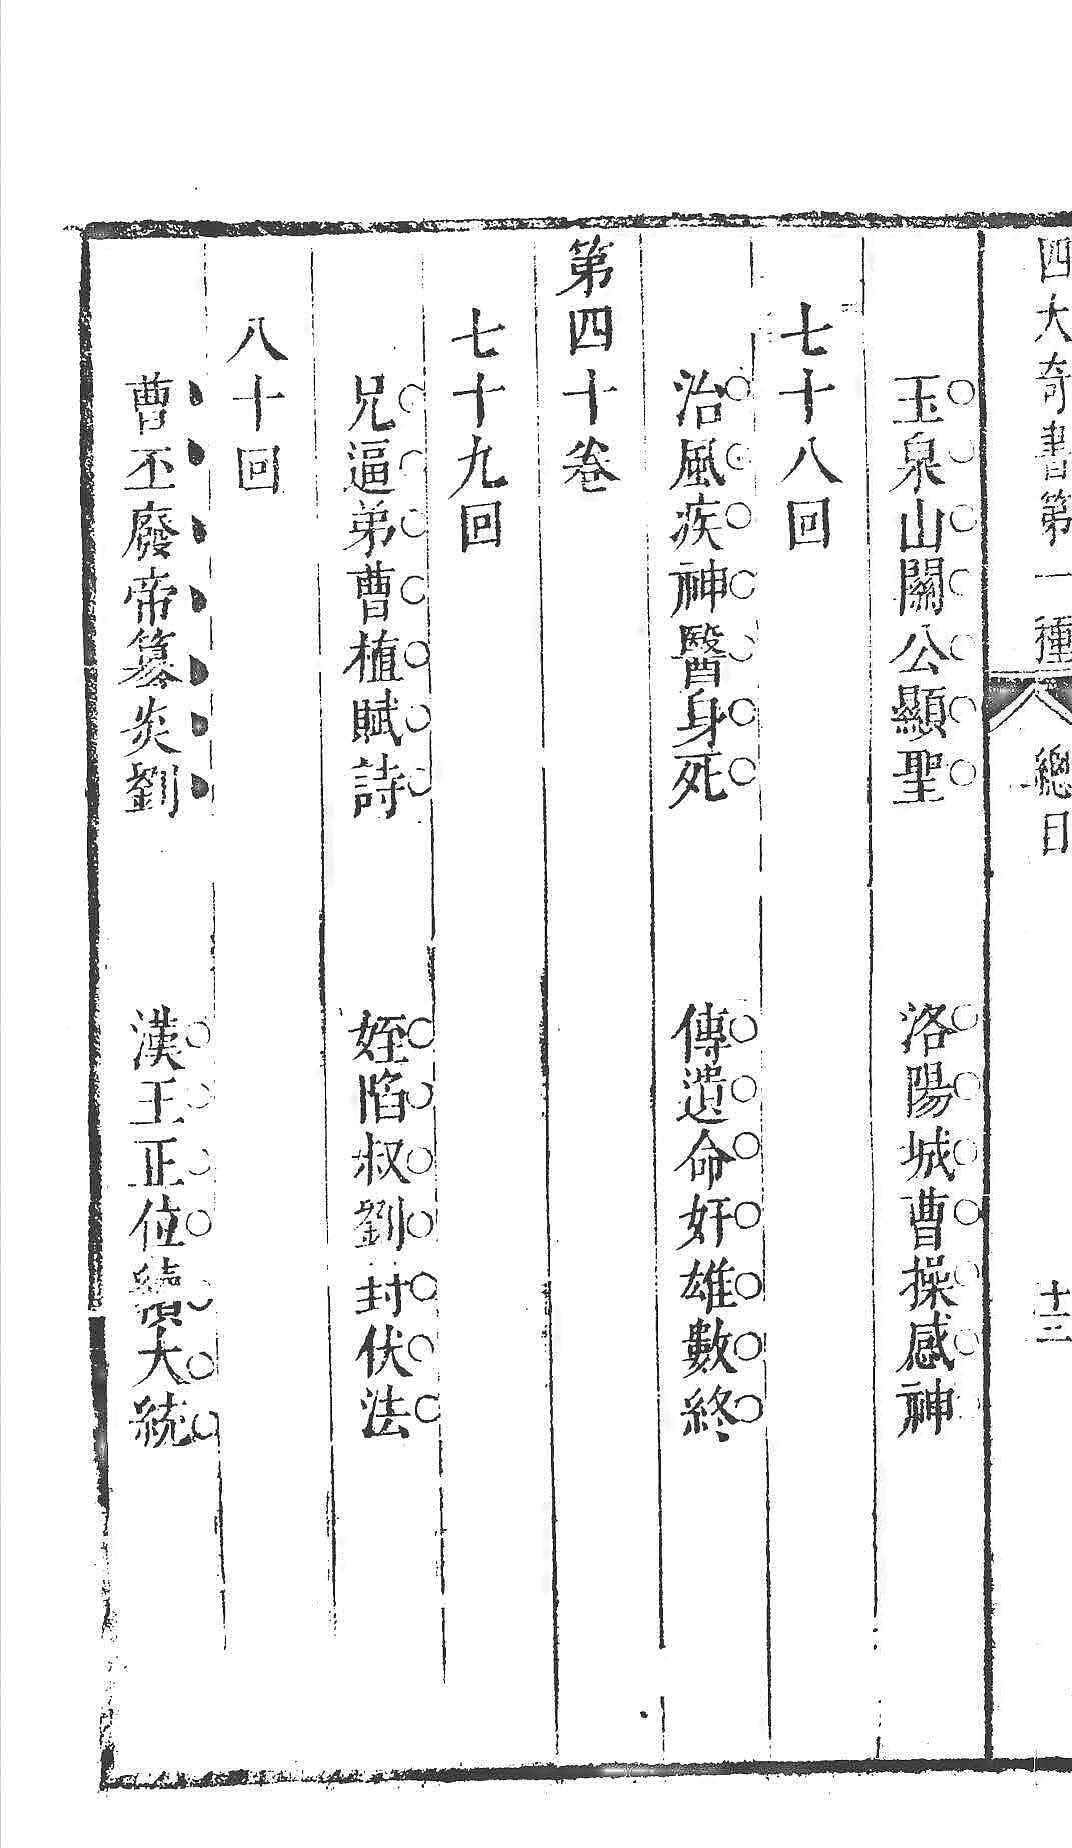 四大奇書第一種 總目 十三
玉泉山關公顯聖 洛陽城曹操感神
七十八回
治風疾神醫身死 傳遺命奸雄數終
第四十卷
七十九回
兄逼弟曹植賦詩 姪陷叔劉封伏法
八十回
曹丕廢帝篡炎劉 漢王正位續大統